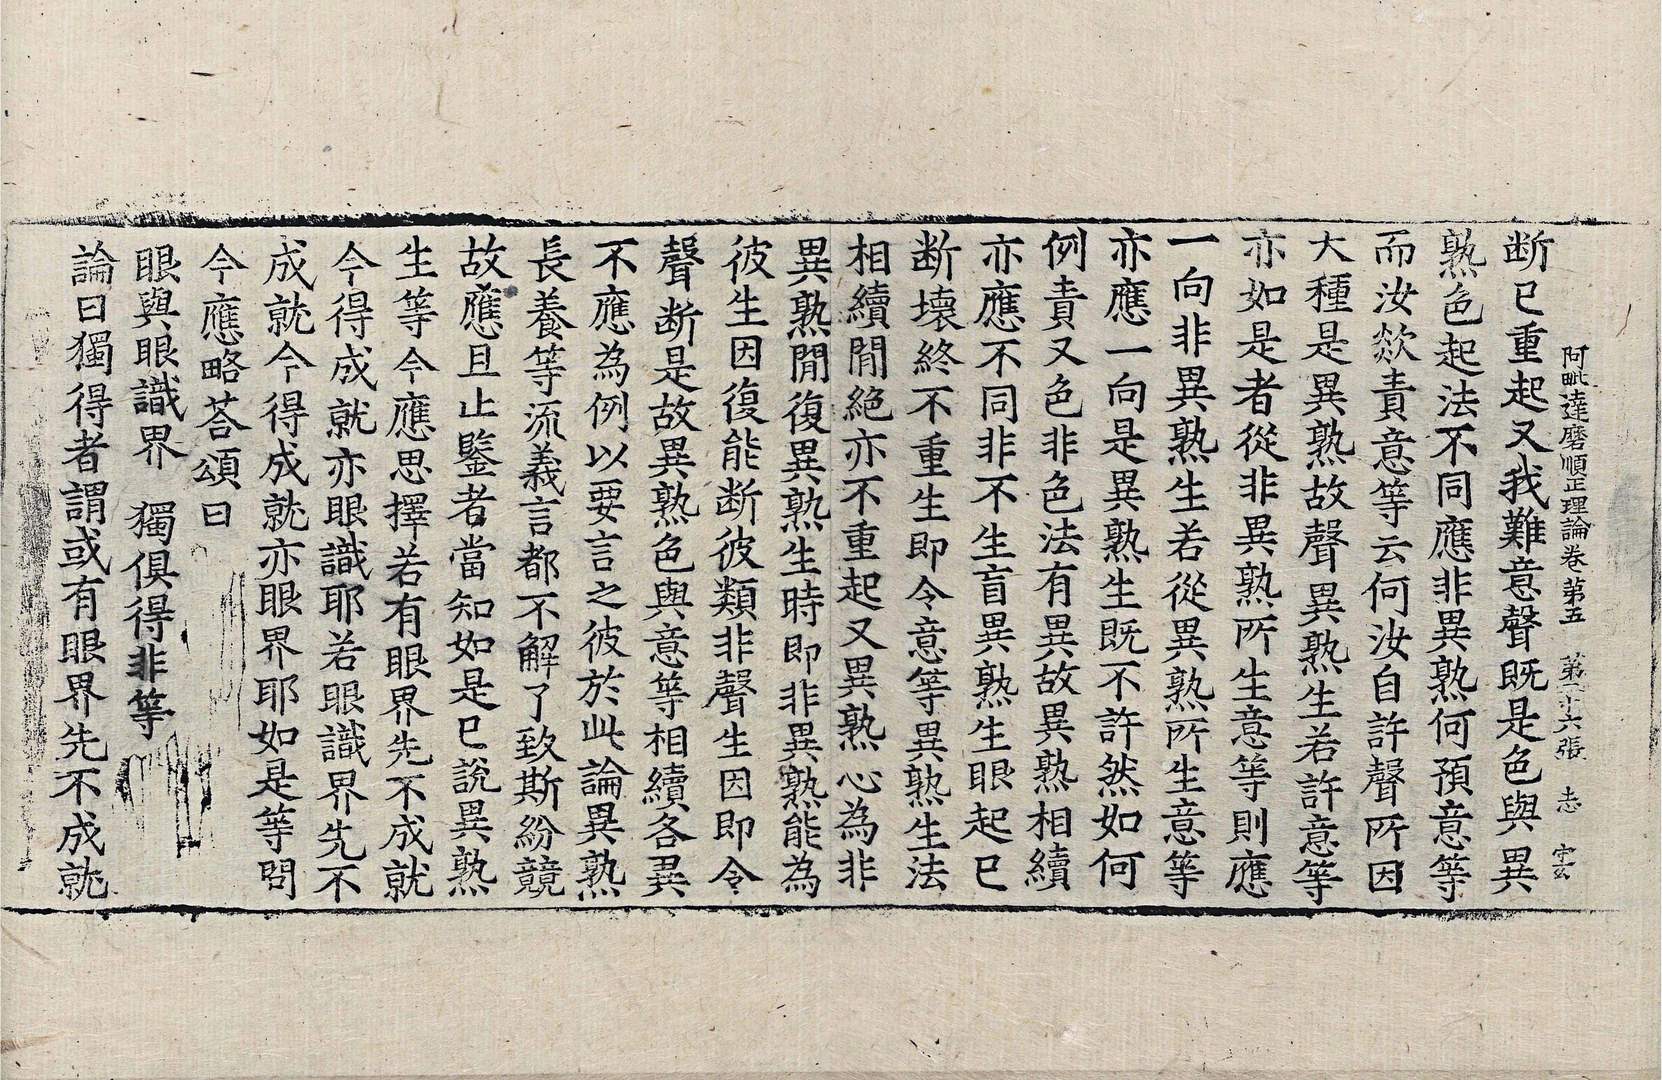 阿毗達磨順正理論卷第五　第二十六張　志
断已重起又我難意聲既是色與異
熟色起法不同應非異熟何預意等
而汝欻責意等云何汝自許聲所因
大種是異熟故聲異熟生若許意等
亦如是者從非異熟所生意等則應
一向非異熟生若從異熟所生意等
亦應一向是異熟生既不許然如何
例責又色非色法有異故異熟相續
亦應不同非不生盲異熟生眼起已
断壞終不重生即令意等異熟生法
相續閒絕亦不重起又異熟心為非
異熟閒復異熟生時即非異熟能為
彼生因復能断彼類非聲生因即令
聲断是故異熟色與意等相續各異
不應為例以要言之彼於此論異熟
長養等流義言都不解了致斯紛競
故應且止鑒者當知如是已說異熟
生等今應思擇若有眼界先不成就
今得成就亦眼識耶若眼識界先不
成就今得成就亦眼界耶如是等問
今應略荅頌曰
眼與眼識界　獨俱得非等
論曰獨得者謂或有眼界先不成就